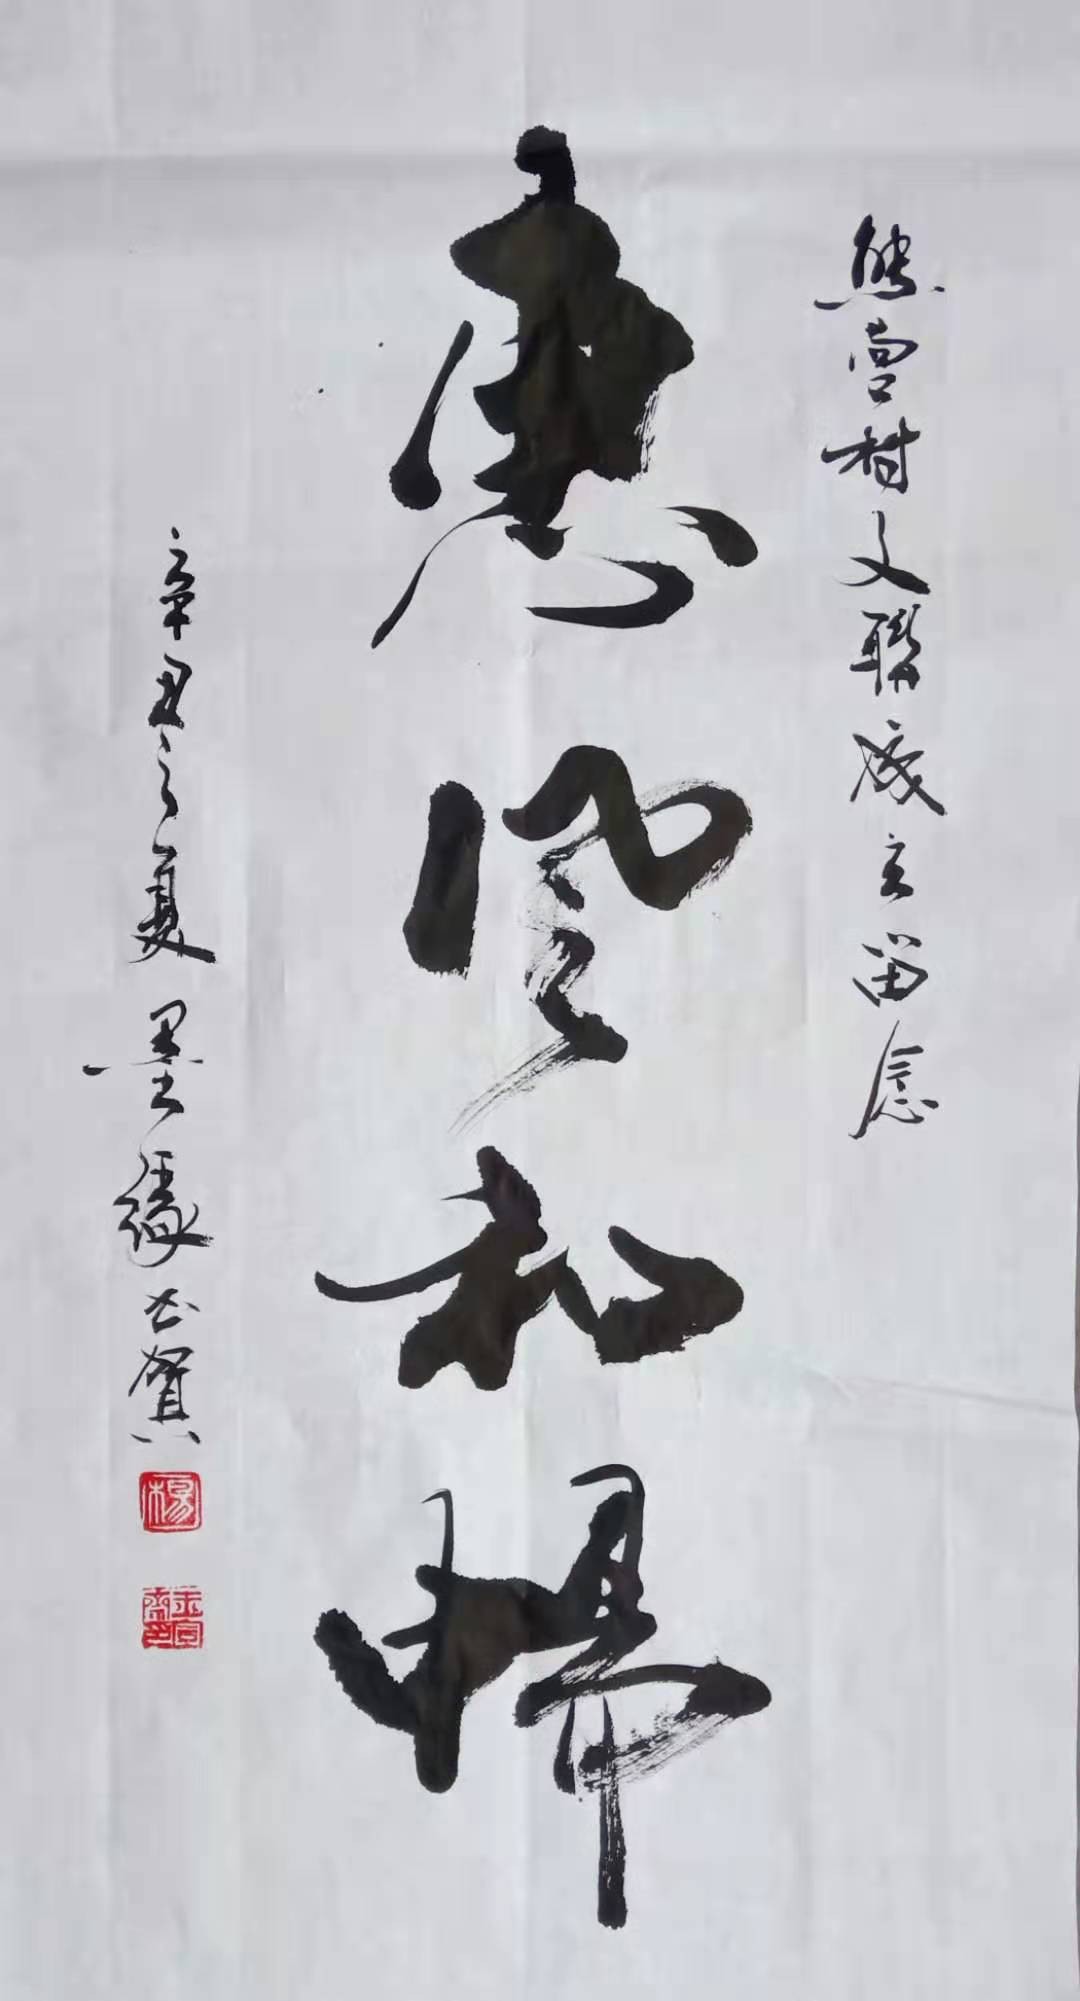 熊营村文联成立留念
惠风和畅
辛丑之夏墨缘书贺
楊